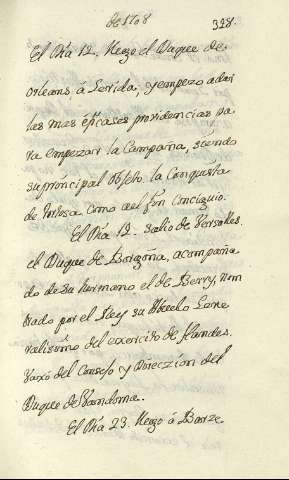 de 1708
328.
El Dia 12. llego el Duque de
orleans á Lerida, y empezo a dar
las mas eficases providencias pa
ra empezar la Campaña, siendo
su principal objeto la Conquista
de Tortosa como al fin consiguio.
El Dia 13. salio de Versalles
el Duque de Borgoña, acompaña
do de su hermano el de Berry, nom
brado por el Rey su Abuelo Gene
ralissimo del exercito de flandes.
vaxo del Consejo y Direczion del
Duque de Vandoma.
El Dia 23. llego á Barze